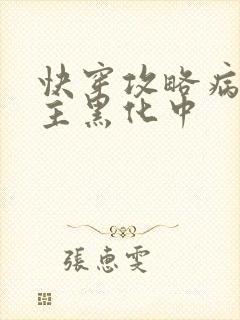 快穿攻略病
主黑化中
張惠雯